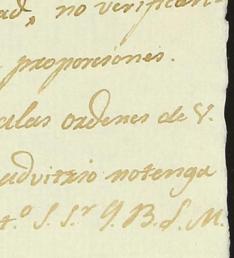 ad, no verifican-
proporsiones.
alas ordenes de V.
advitrio notenga
4.º S. S.r q. B. S. M.